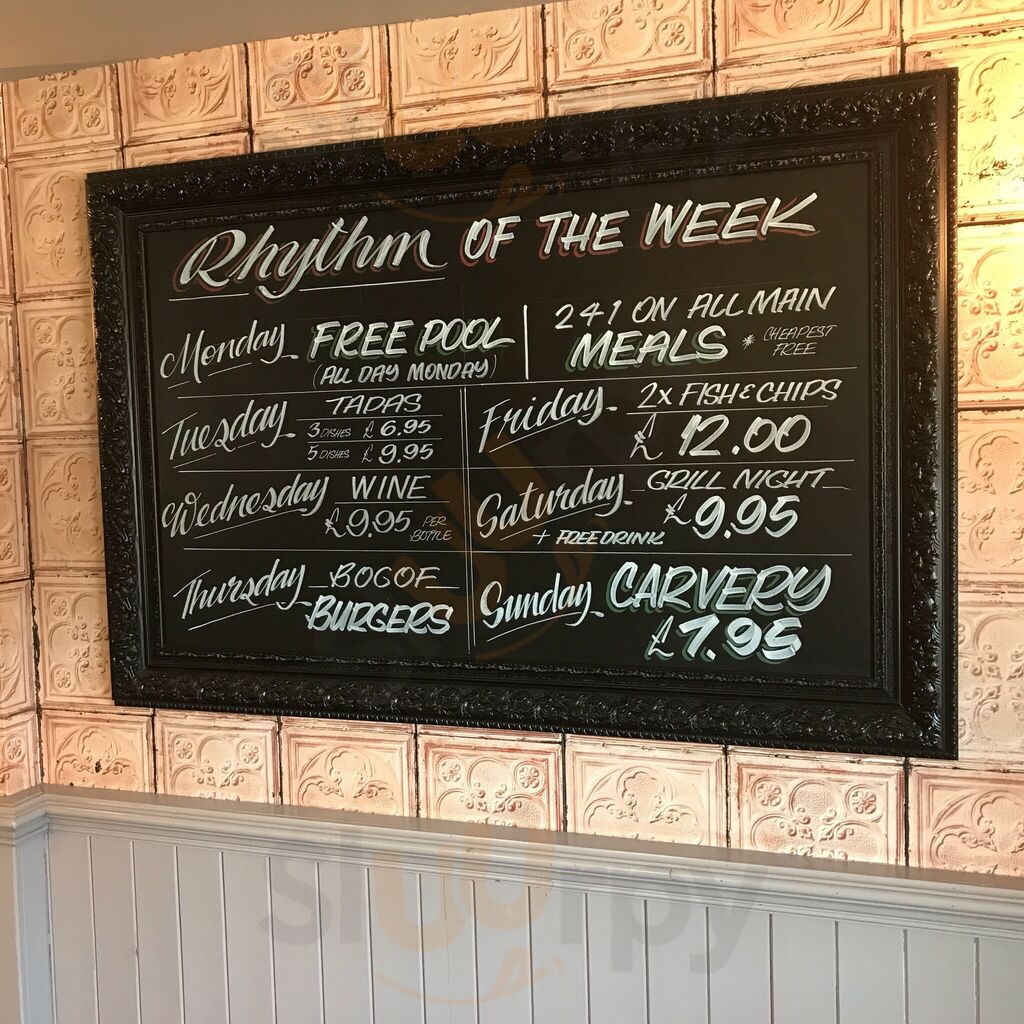 Rhythm OF THE WEEK
Monday FREE POOL
(ALL DAY MONDAY)
241 ON ALL MAIN
MEALS * CHEAPEST
FREE
Tuesday TAPAS
3 DISHES £6.95
5 DISHES £9.95
Friday 2x FISH & CHIPS
£12.00
Wednesday WINE
£9.95 PER
BOTTLE
Saturday GRILL NIGHT
£9.95
+ FREE DRINK
Thursday BOGOF
BURGERS
Sunday CARVERY
£7.95
sluurpy